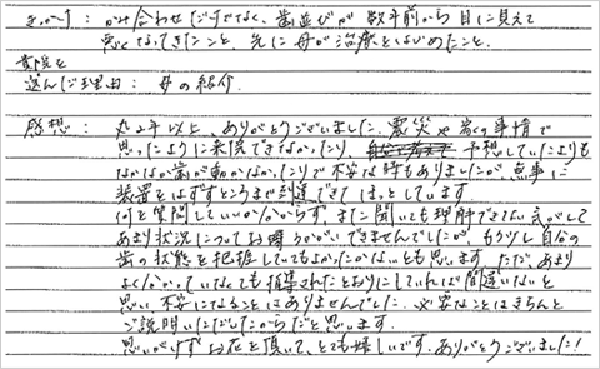 きっかけ： かみ合わせだけでなく、歯並びが数年前から目に見えて
悪くなってきたこと、先に母が治療をはじめたこと。
貴院を
選んだ理由： 母の紹介
感想： 丸2年以上、ありがとうございました。震災や 事情で
思ったように来院できなかったり、予想していたよりも
なかなか歯が動かなかったりで不安な時もありましたが、無事に
装置をはずすところまで到達できてほっとしています
何と質問していいか分からず、また聞いても理解できない気がして
あまり状況についてお聞 できませんでしたが、もう少し自分の
歯の状態を把握してもよかったかなとも思います。ただ、あまり
よくわかっていなくても指導されたとおりにしていれば間違いないと
思い不安になることはありませんでした。必要なことはきちんと
ご説明いただいたからだと思います。
思いがけずお花を頂いて、とても嬉しいです。ありがとうございました！